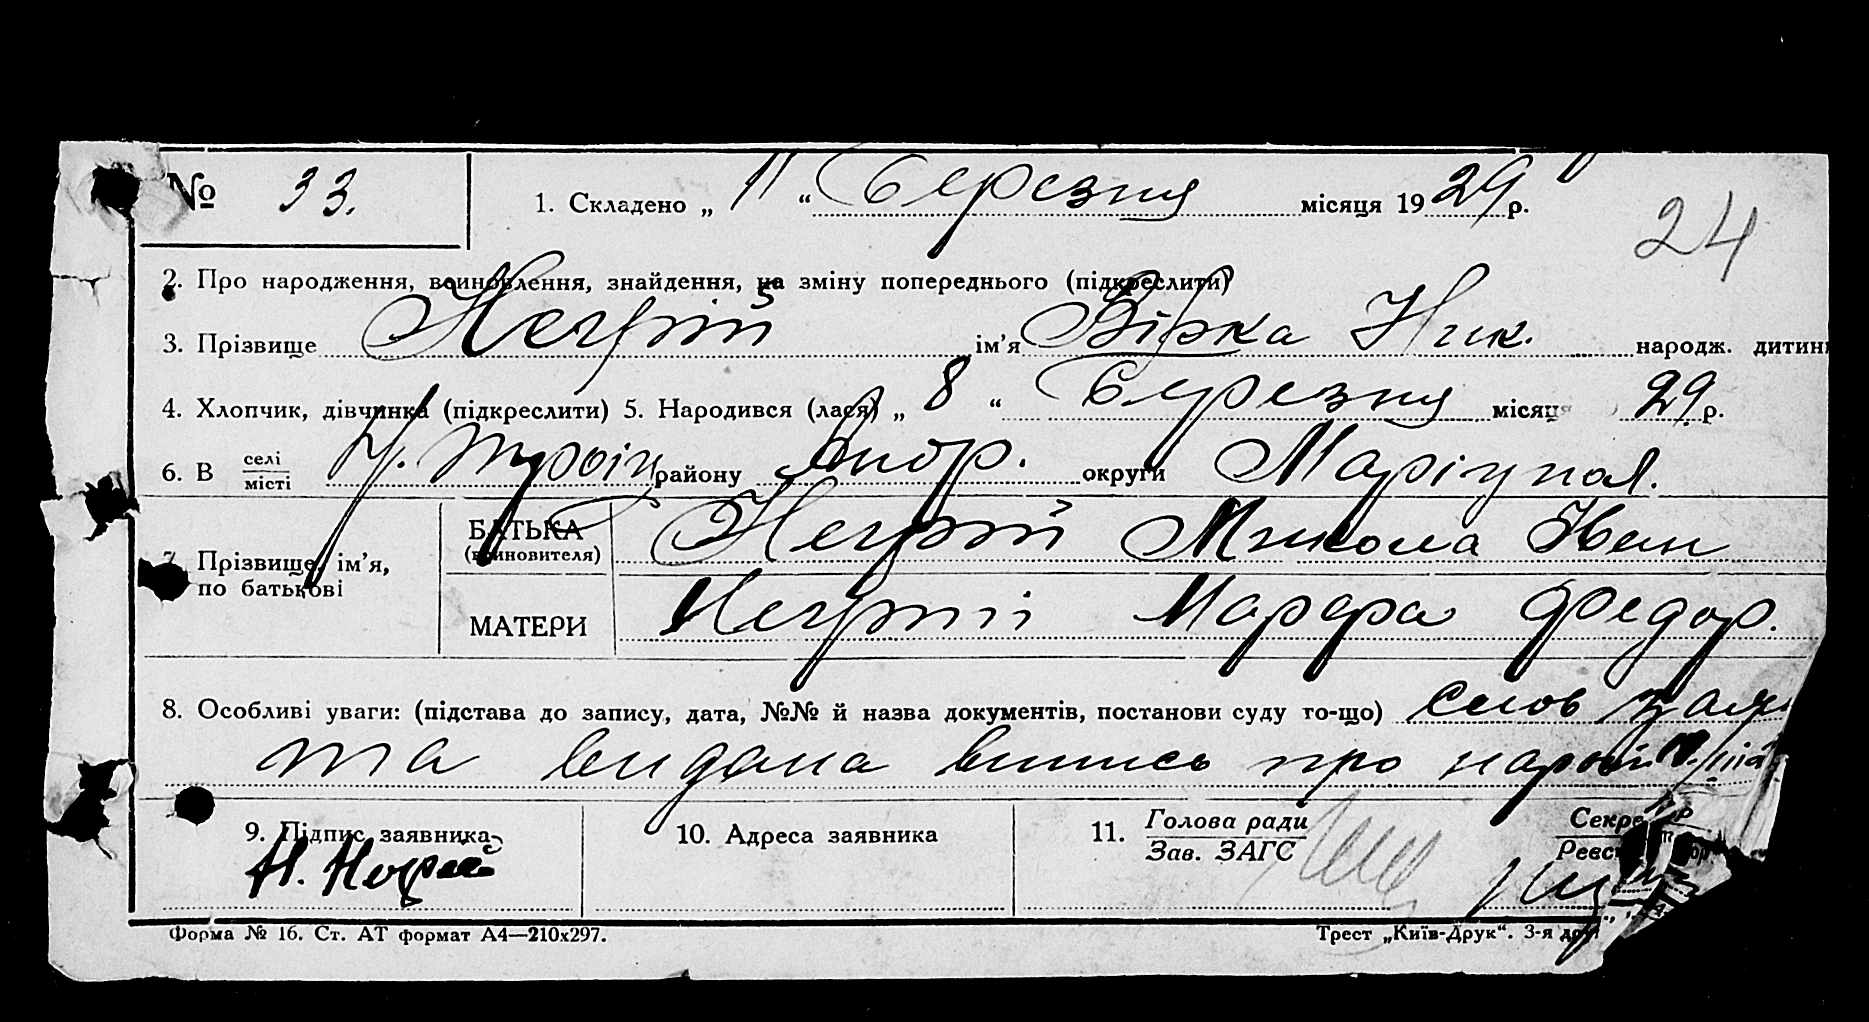 № 33.
1. Складено „ 11 “ Березня місяця 1929 р.
24
2. Про народження, всиновлення, знайдення, на зміну попереднього (підкреслити)
3. Прізвище Негрій ім'я Вірка Ник. народж. дитин
4. Хлопчик, дівчинка (підкреслити) 5. Народився (лася) „ 8 “ Березня місяц 29 р.
6. В селі / місті району округи Маріупол.
7. Прізвище, ім'я, по батькові
БАТЬКА (всиновителя) Негрій Микола Іван
МАТЕРИ Негрій Марфа Федор.
8. Особливі уваги: (підстава до запису, дата, №№ й назва документів, постанови суду то-що) слов заяв
та видана випись про народ
9. Підпис заявника
Н. Негрій
10. Адреса заявника
11. Голова ради
Зав. ЗАГС
Секре
Реєс
Форма № 16. Ст. АТ формат А4—210х297.
Трест „Київ-Друк“. 3-я